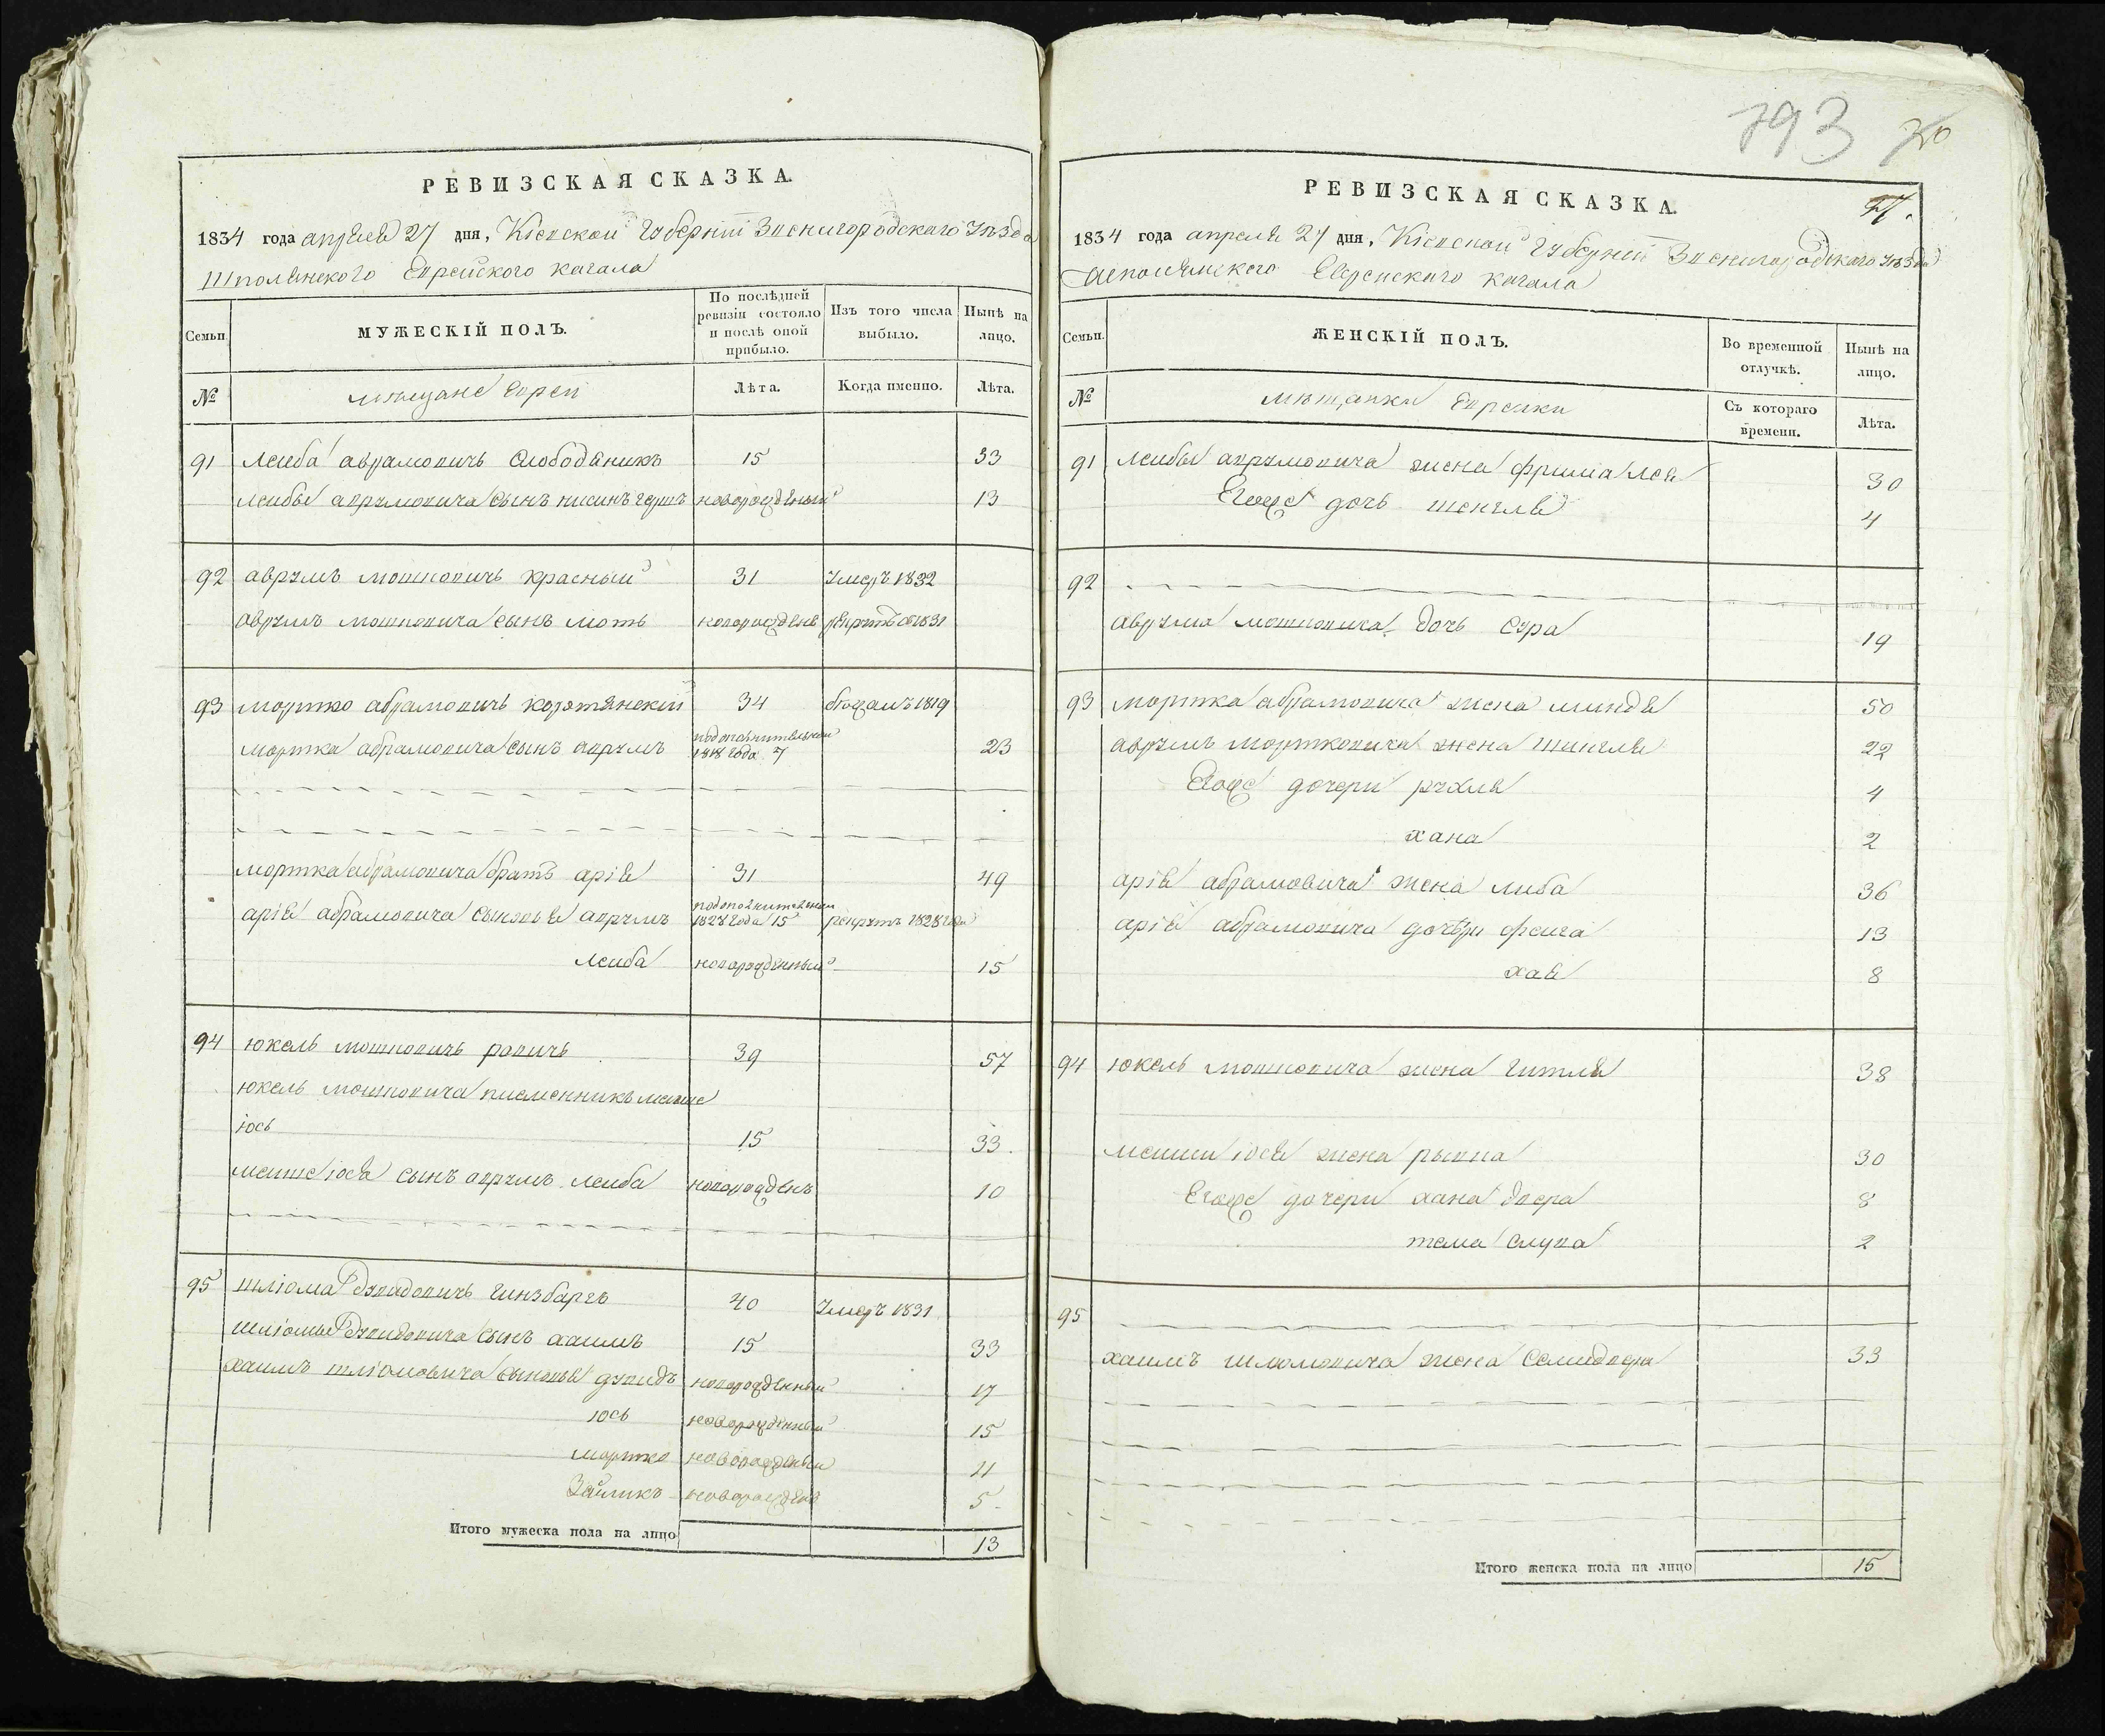 РЕВИЗСКАЯ СКАЗКА.
1834 года апреля 27 дня, Кіевской Губерніи Звенигородского Уѣзда
Шполянского Еврейского кагала
Семьи
МУЖЕСКІЙ ПОЛЪ.
По послѣдней ревизіи состояло и послѣ оной прибыло.
Изъ того числа выбыло.
Нынѣ на лицо.
№
мѣщане Евреи
Лѣта.
Когда именно.
Лѣта.
91 Лейба аврамовичь Слободяникъ 15 33
лейбы аврумовича сынъ нисинъ герш новорожденый 13
92 аврумъ мошковичь красный 31 Умеръ 1832
аврумъ мошковича сынъ моть новорожденъ рекрутъ 1831
93 мортко абрамовичь коротянскій 34 бѣжалъ 1819
мортка абрамовича сынъ аврумъ подополнительной 1818 года 7 23
мортка абрамовича братъ арія 31 49
арія абрамовича сыновья аврумъ подополнительной 1828 года 15 рекрутъ 1828 года
лейба новорожденный 15
94 юкель мошковичь рович 39 57
юкель мошковича племенникъ меише
іось 15 33.
меише іося сынъ аврумъ лейба новорожденъ 10
95 шліома Дувидовичь Гинзбаргъ 40 Умеръ 1831
шліомы Дувидовича сынъ хаимъ 15 33
хаимъ шліомовича сыновья дувидъ новорожденный 17
юсь новорожденный 15
мортко новорожденый 11
Зейликъ новорожденъ 5
Итого мужеска пола на лицо 13
793
РЕВИЗСКАЯ СКАЗКА.
1834 года апреля 27 дня, Кіевской Губерніи Звенигородского Уѣзда
Шполянского Еврейского кагала
Семьи.
ЖЕНСКІЙ ПОЛЪ.
Во временной отлучкѣ.
Нынѣ на лицо.
№
мѣщанки Еврейки
Съ котораго времени.
Лѣта.
91 Лейбы аврумовича жена фрима лея 30
Егоже дочь шенгля 4
92
аврума мошковича дочь Сура 19
93 мортка абрамовича жена миндя 50
аврумъ мортковича жена Шингля 22
Егоже дочери рухля 4
хана 2
арія абрамовича жена либа 36
арія абрамовича дочери феига 13
хая 8
94 юкель мошковича жена Гитля 38
меиши іося жена рывка 30
Егоже дочери хана двера 8
тема слува 2
95
хаимъ шмомовича жена Селидвера 33
Итого женска пола на лицо 15